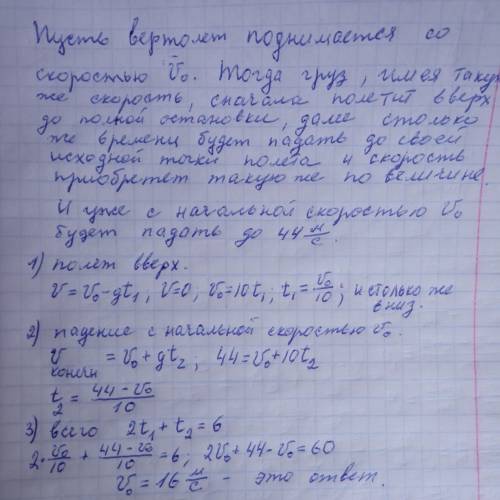 Пусть вертолет поднимается со
скоростью v₀. Тогда груз, имея такую
же скорость, сначала полетит вверх
до полной остановки, далее столько
же времени будет падать до своей
исходной точки полета и скорость
приобретет такую же по величине.
И уже с начальной скоростью v₀
будет падать до 44 м/с.
1) полет вверх.
v = v₀ - gt₁, v=0, v₀=10t₁; t₁ = v₀/10; и столько же
вниз.
2) падение с начальной скоростью v₀.
v конечн = v₀ + gt₂; 44 = v₀ + 10t₂
t₂ = (44 - v₀)/10
3) всего 2t₁ + t₂ = 6
2·v₀/10 + (44 - v₀)/10 = 6; 2v₀ + 44 - v₀ = 60
v₀ = 16 м/с - это ответ.